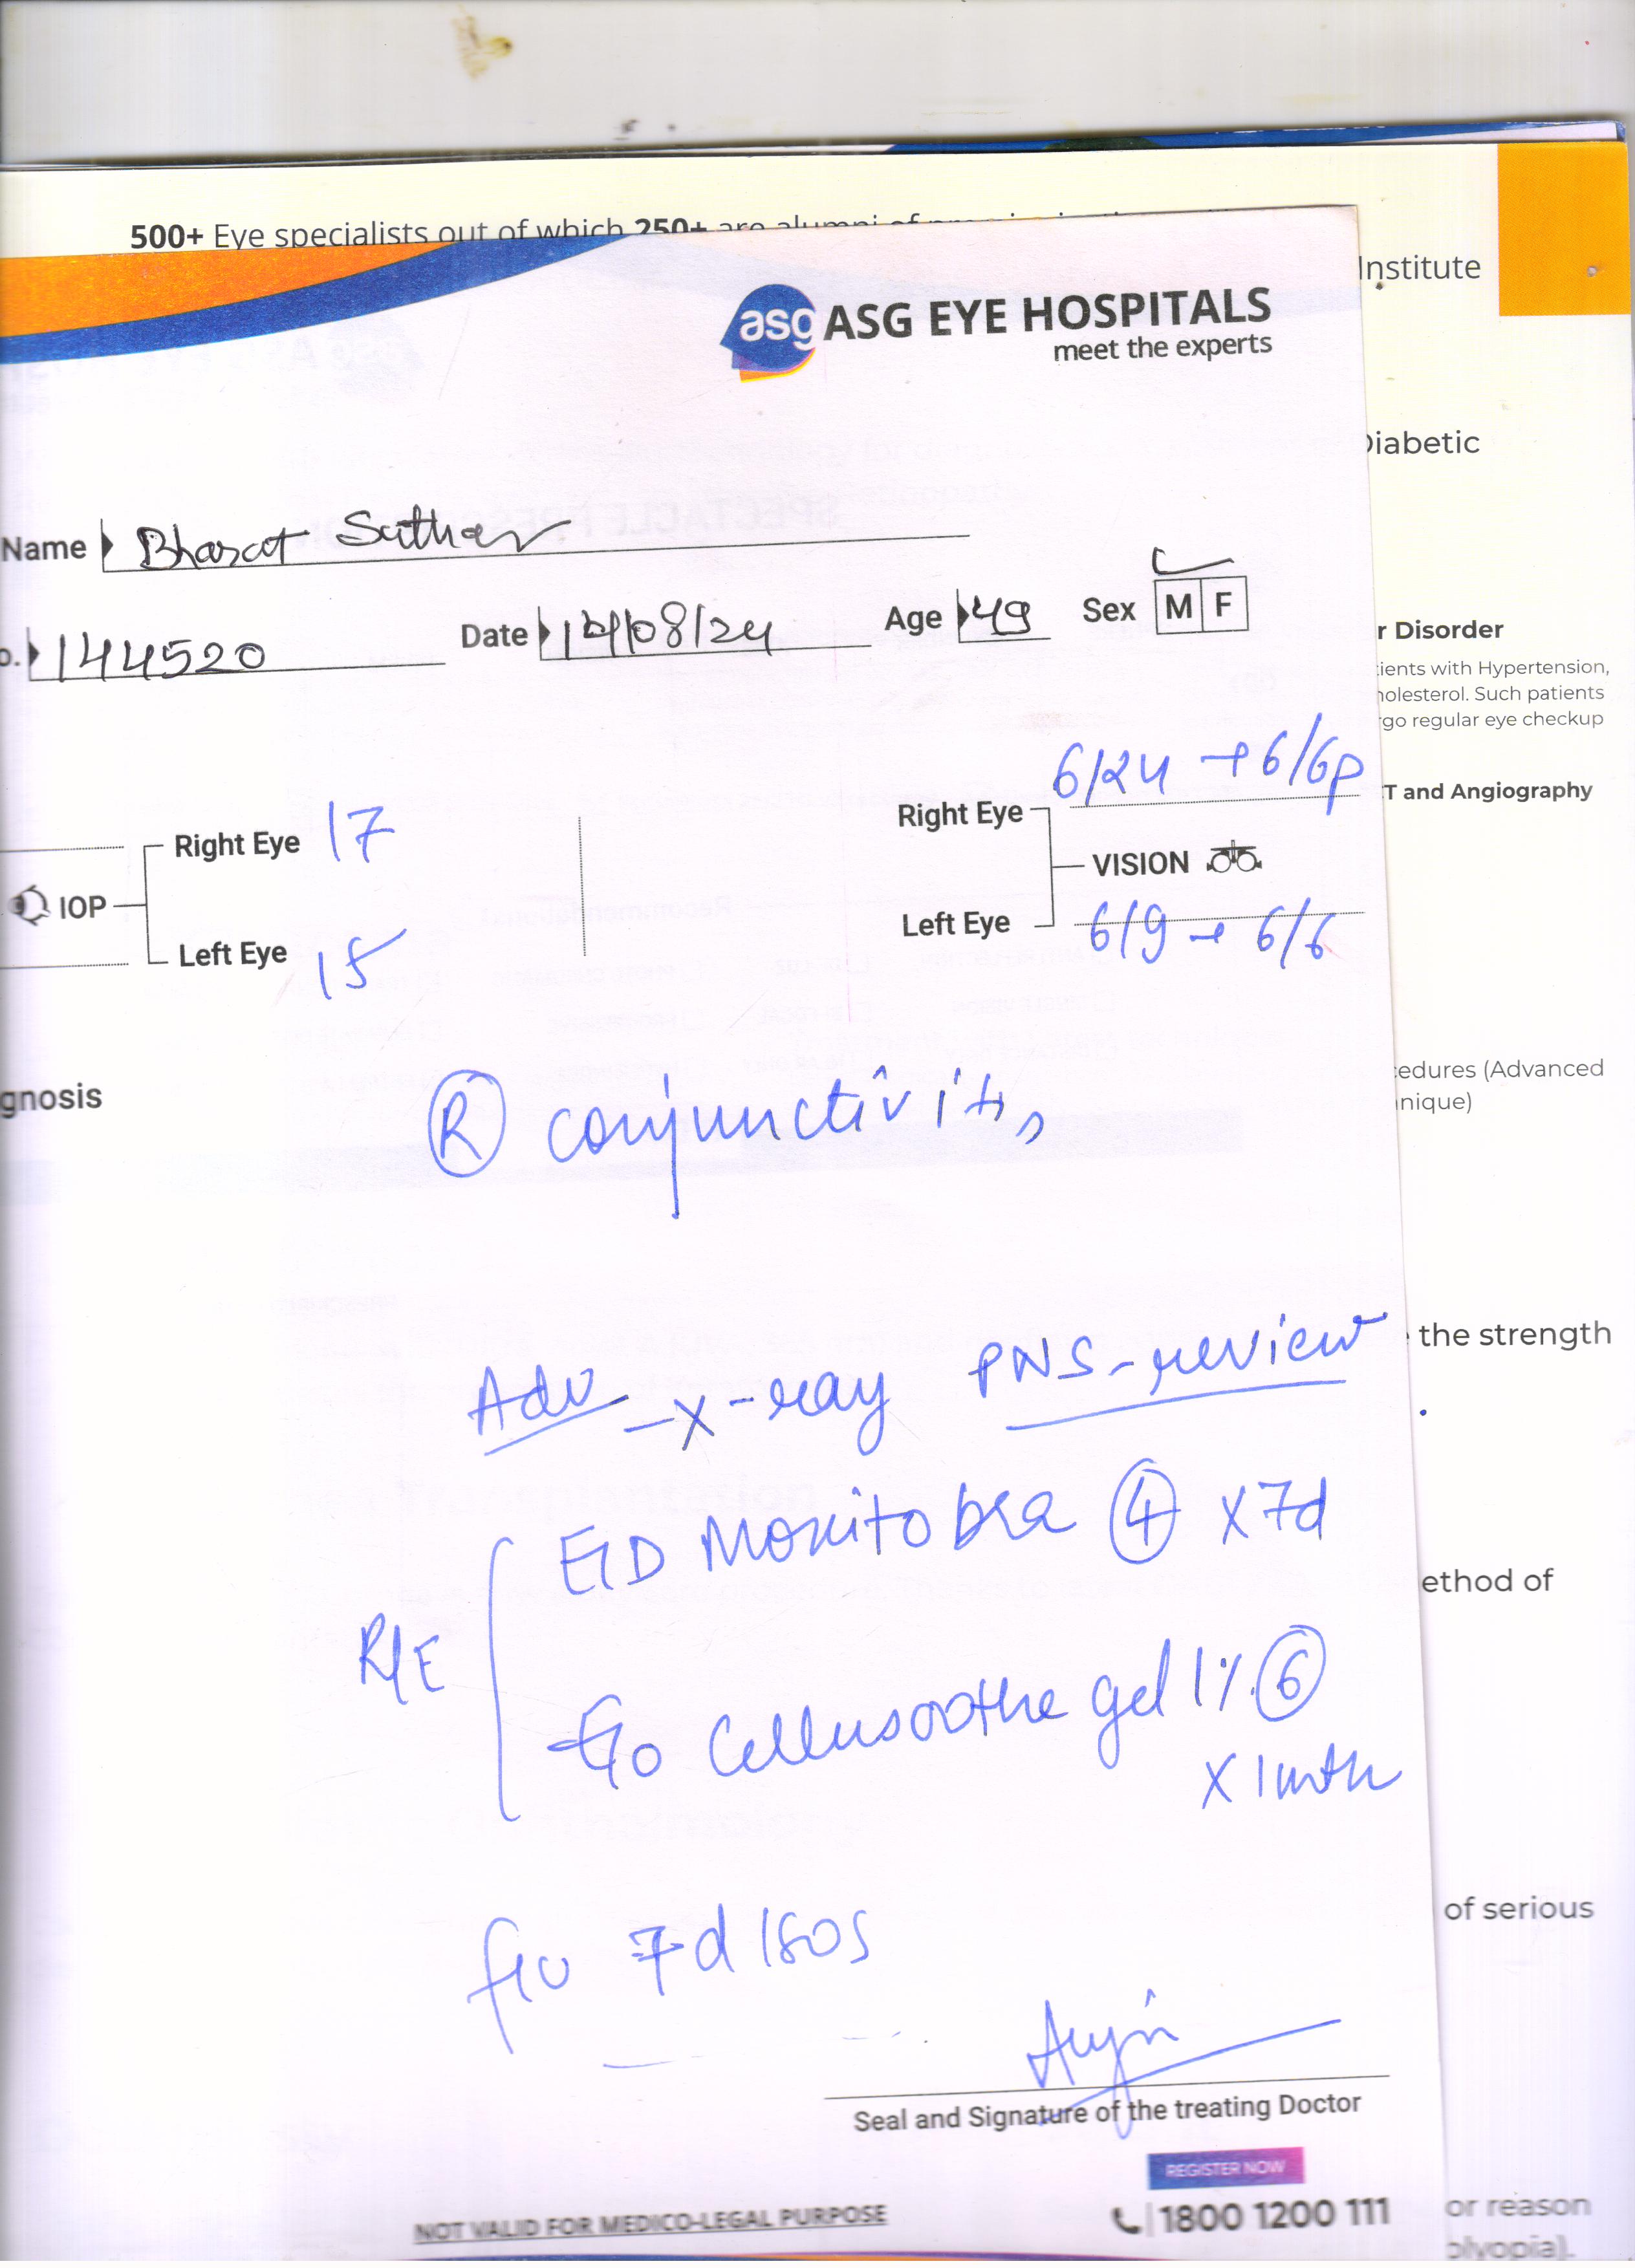 500+ Eye specialists out of which 250+ are alumni of
Institute
asg ASG EYE HOSPITALS
meet the experts
Diabetic
Name Bharat Suthar
o. 144520 Date 14/08/24 Age 49 Sex M F
r Disorder
ients with Hypertension,
holesterol. Such patients
rgo regular eye checkup
T and Angiography
Right Eye 17
IOP
Left Eye 15
Right Eye 6/24 → 6/6p
VISION
Left Eye 6/9 → 6/6
gnosis
R conjunctivitis
edures (Advanced
nique)
the strength
Adv - X-ray PNS - review
R/E
E/D Moxitobra 4 x 7d
ethod of
E/D Cellusoothe gel 1% 6
x 1 mth
of serious
f/u 7d / SOS
Seal and Signature of the treating Doctor
REGISTER NOW
NOT VALID FOR MEDICO-LEGAL PURPOSE
1800 1200 111
or reason
plyopia).